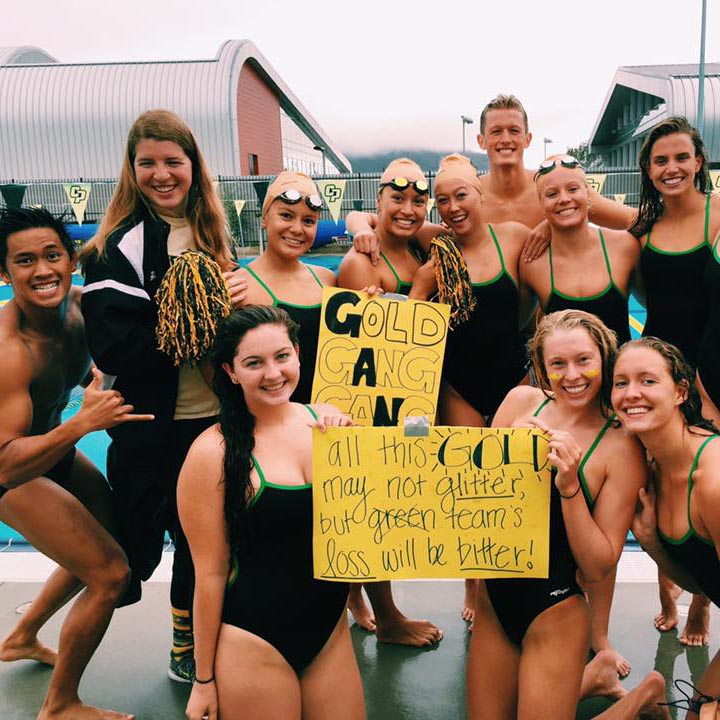 CP
CP
GOLD
GANG
GANG
all this GOLD
may not glitter,
but green team's
loss will be bitter!